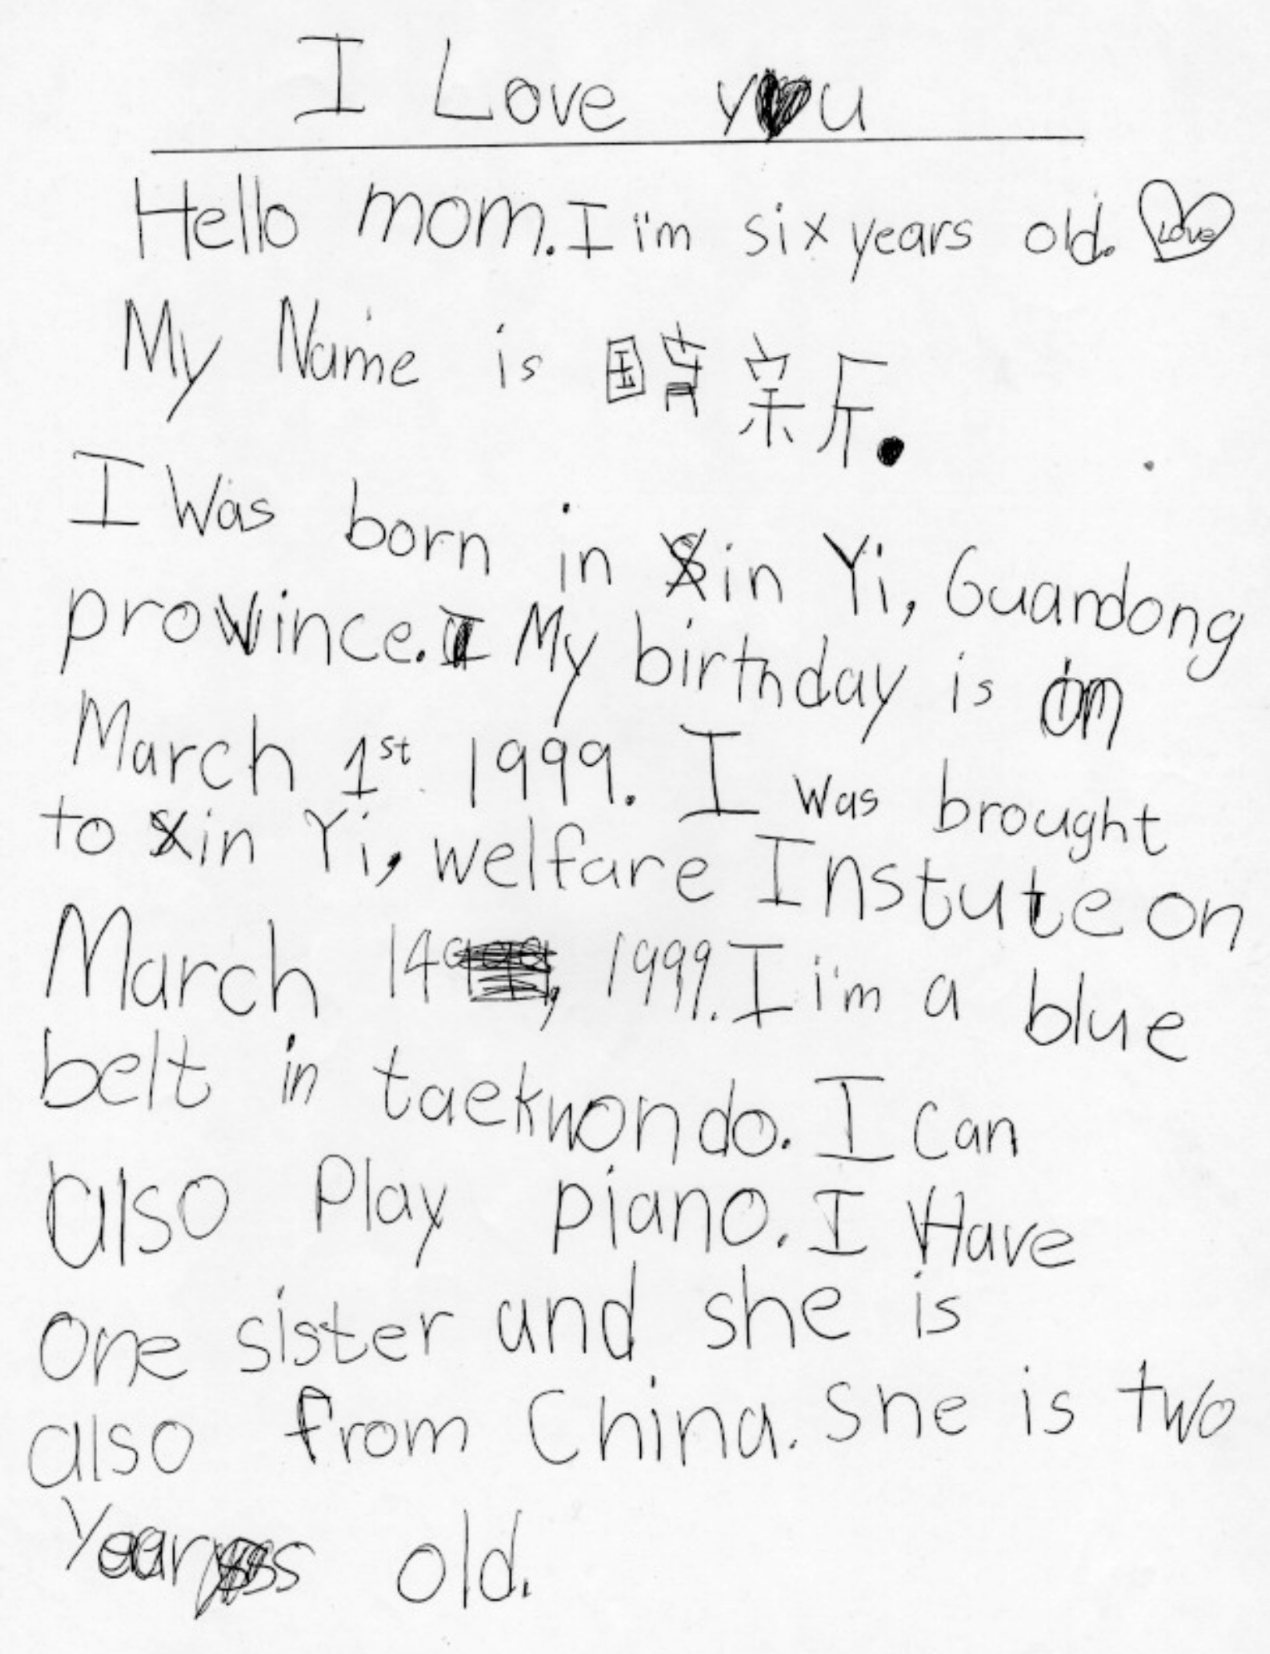 I Love you
Hello mom. I i'm six years old. Love
My Name is
I Was born in Xin Yi, Guandong
province. My birthday is on
March 1st 1999. I was brought
to Xin Yi, welfare Instute on
March 14, 1999. I i'm a blue
belt in taekwondo. I can
also Play piano. I Have
one sister and she is
also from China. She is two
Years old.